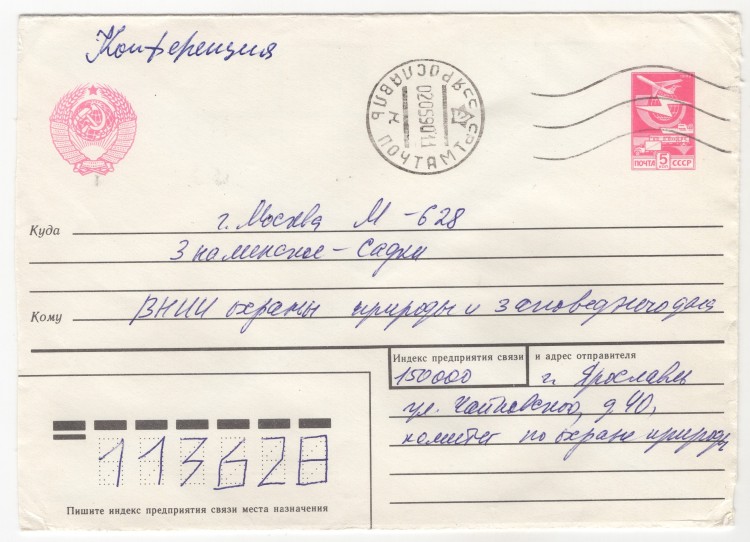 Конференция
СССР ЯРОСЛАВЛЬ
02059011
К ПОЧТАМТ
ПОЧТА 5 СССР
Куда г. Москва М-628
Знаменское-Садки
Кому ВНИИ охраны природы и заповедного дела
Индекс предприятия связи и адрес отправителя
150000 г. Ярославль
ул. Чайковского, д. 40,
комитет по охране природы
113628
Пишите индекс предприятия связи места назначения